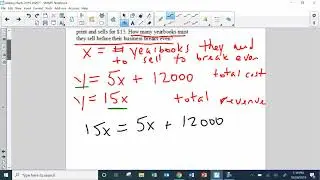 print and sells for $15. How many yearbooks must
they sell before their business breaks even?
x = # yearbooks they need
to sell to break even
y = 5x + 12000 total cost
y = 15x total revenue
15x = 5x + 12000